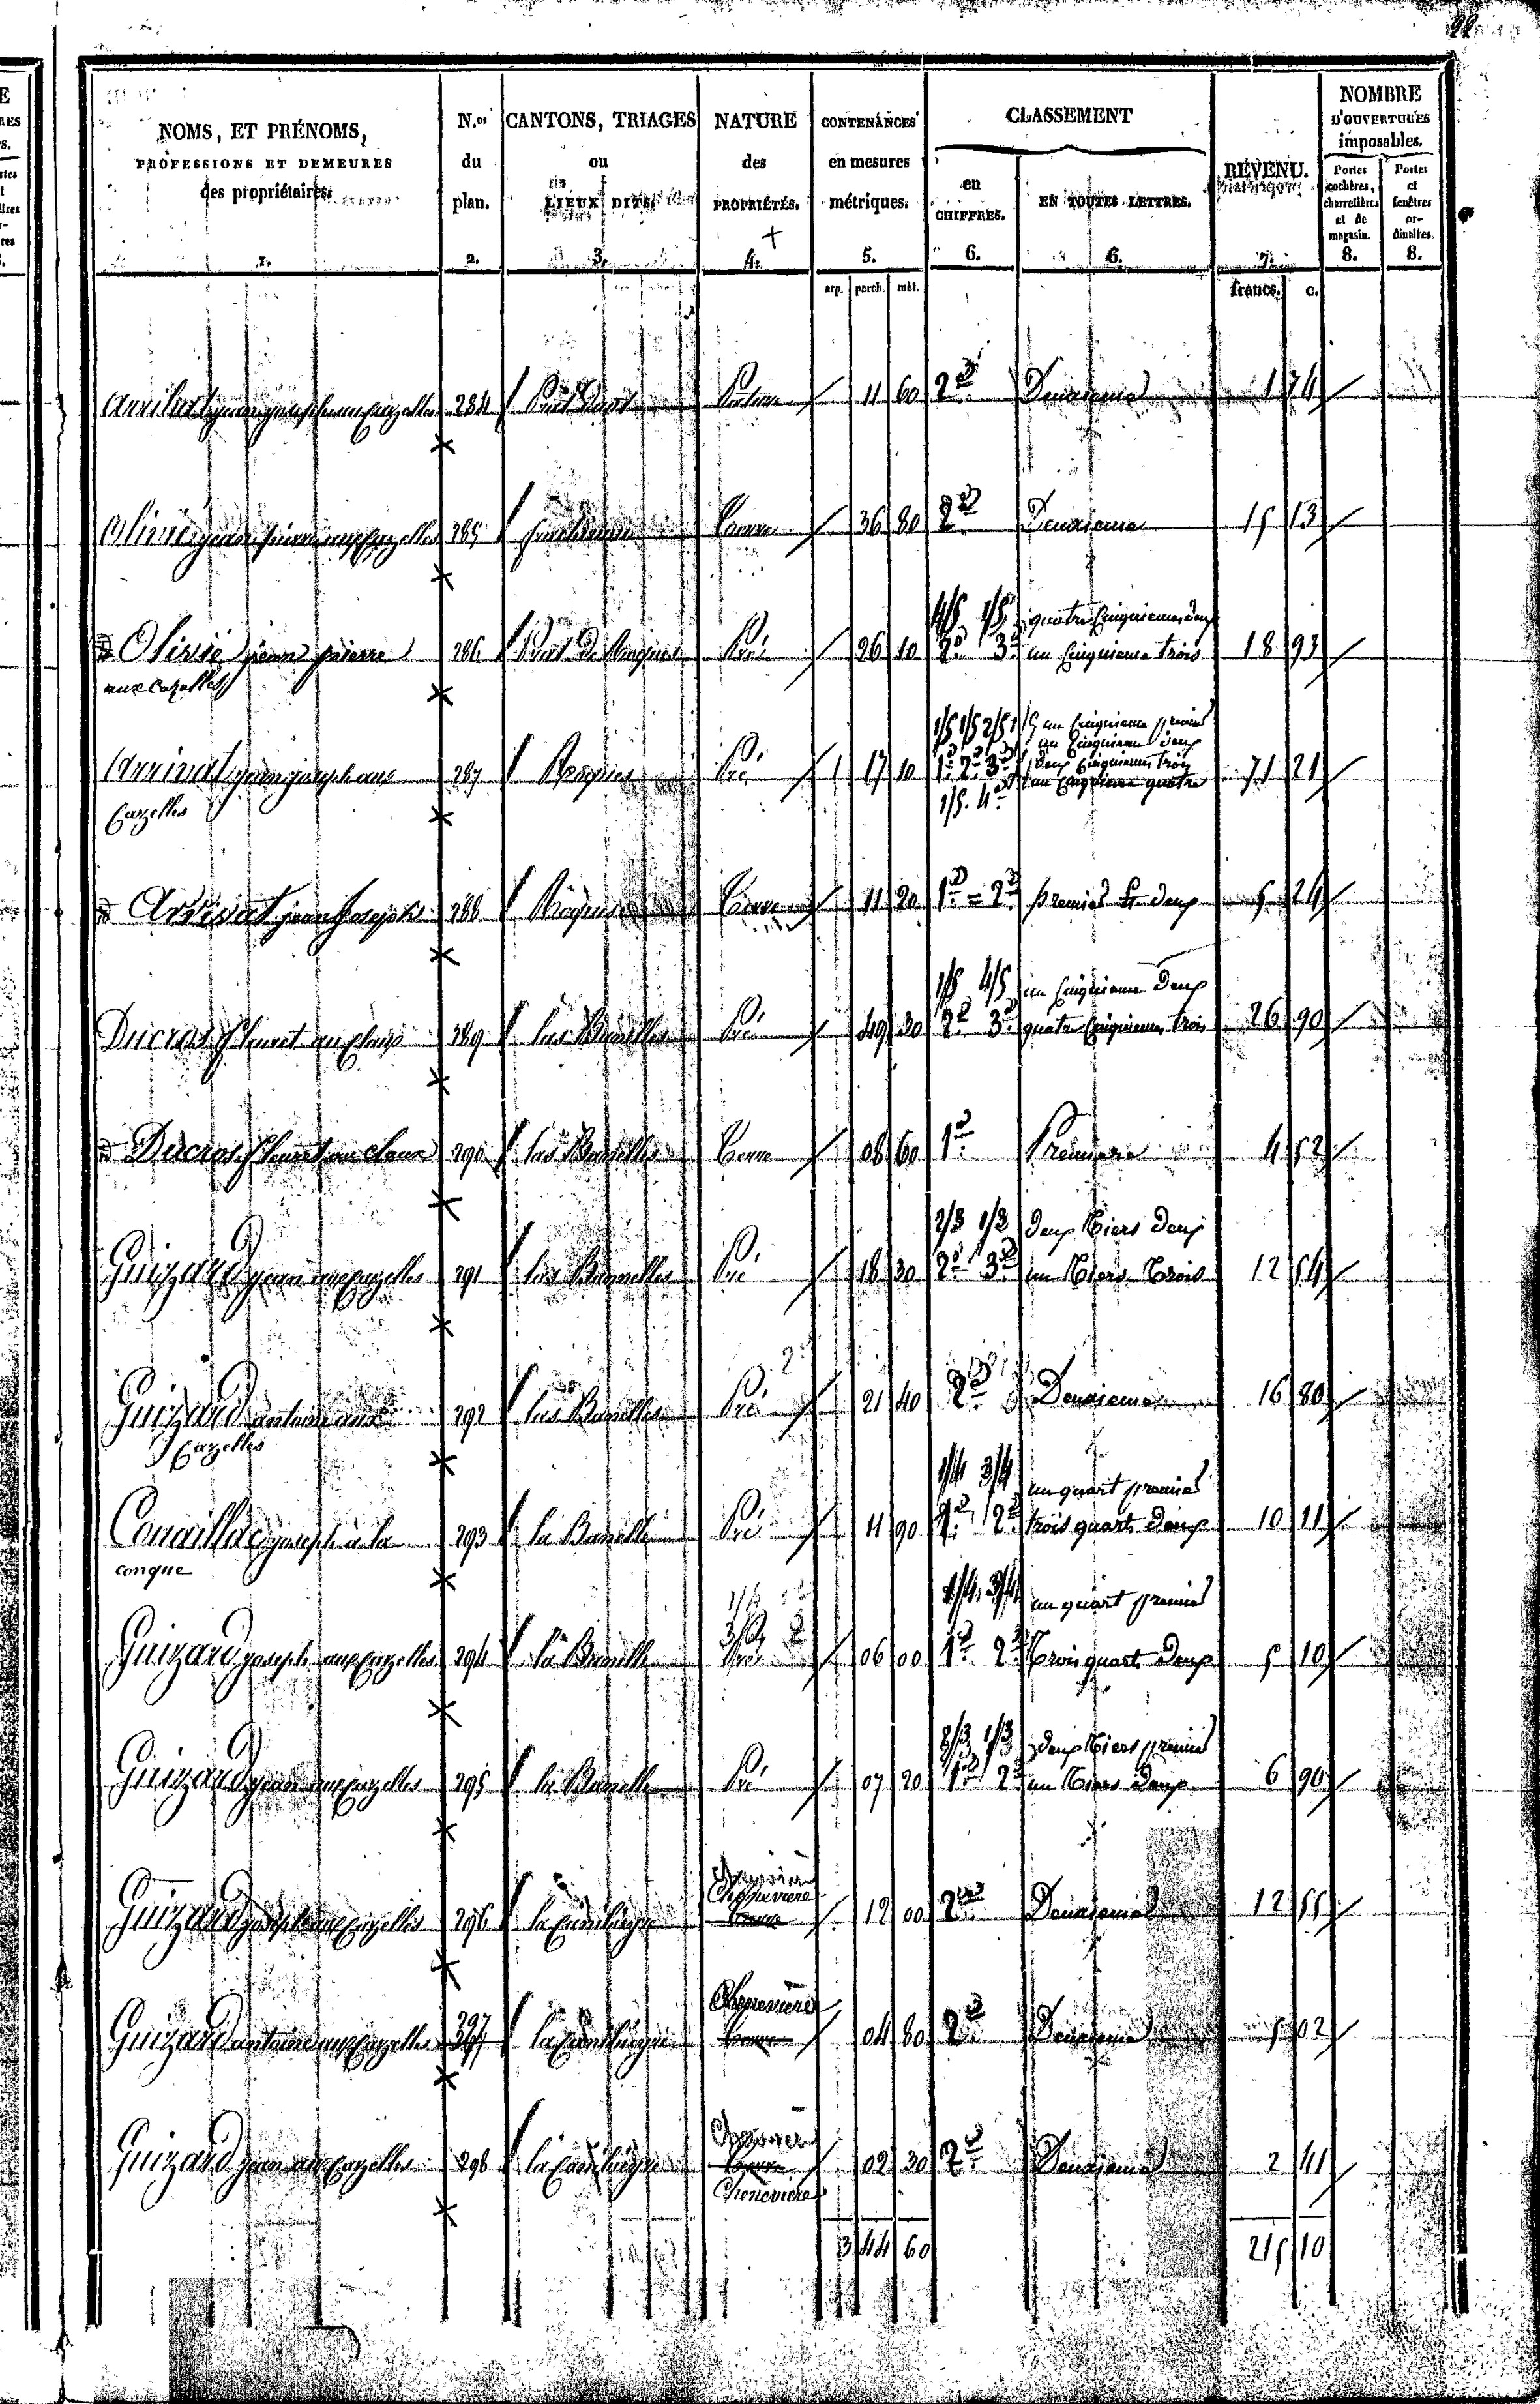 22
NOMS, ET PRÉNOMS, PROFESSIONS ET DEMEURES des propriétaires. 1.
N.os du plan. 2.
CANTONS, TRIAGES ou LIEUX DITS. 3.
NATURE des PROPRIÉTÉS. 4.
CONTENANCES en mesures métriques. 5.
CLASSEMENT
en CHIFFRES. 6.
EN TOUTES LETTRES. 6.
REVENU. 7.
NOMBRE D'OUVERTURES imposables.
Portes cochères, charretières et de magasin. 8.
Portes et fenêtres ordinaires. 8.
arp. perch. mèt. francs. c.
jean joseph aux Cazelles 284 11 60 2e Deuxieme 1 74
Olivié jean pierre aux Cazelles 285 Terre 36 80 2e Deuxieme 15 13
4/5 1/5 quatre Cinquiemes deux
Olivié jean pierre 286 Prat de Roques Pré 26 10 2e 3e un Cinquieme trois 18 93
aux Cazelles
1/5 1/5 2/5 un Cinquieme premier
un Cinquieme deux
Arrivat jean joseph aux 287 Roques Pré 1 17 10 1e 2e 3e deux Cinquiemes trois 71 21
Cazelles 1/5 4e un Cinquieme quatre
Arrivat jean Joseph 288 Roques Terre 11 20 1e = 2e premier Et deux 5 24
1/5 4/5 un Cinquieme Deux
Ducros fleuret au Claux 289 las Bamelles Pré 49 30 2e 3e quatre Cinquiemes trois 26 90
Ducros fleuret au claux 290 las Bamelles Terre 08 60 1e Premiere 4 52
2/3 1/3 deux Tiers deux
Guizard jean aux Cazelles 291 las Bamelles Pré 18 30 2e 3e un Tiers Trois 12 54
Guizard antoine aux 292 las Bamelles Pré 21 40 2e Deuxieme 16 80
Cazelles
1/4 3/4 un quart premier
joseph à la 293 la Bamelle Pré 11 90 1e 2e trois quart deux 10 11
conque
1/4 3/4 un quart premier
Guizard joseph aux Cazelles 294 la Bamelle Pré 06 00 1e 2e Trois quart Deux 5 10
2/3 1/3 deux Tiers premier
Guizard jean aux Cazelles 295 la Bamelle Pré 07 20 1e 2e un Tiers Deux 6 90
Cheneviere
Guizard joseph aux Cazelles 296 Terre 12 00 2e Deuxieme 12 55
297 Cheneviere
Guizard antoine aux Cazelles Terre 04 80 2e Deuxieme 5 02
Guizard jean aux Cazelles 298 Terre 02 30 2e Deuxieme 2 41
Cheneviere
3 44 60 215 10